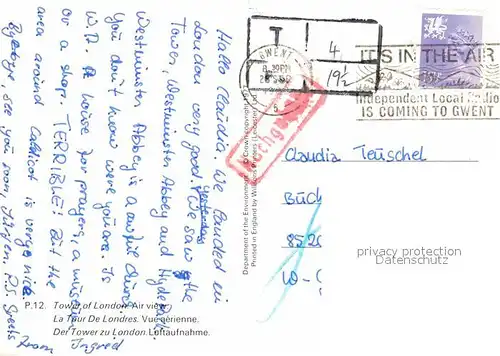 Hallo Claudia. We landed in
London very good. We saw yesterday the
Tower, Westminster Abbey and Hydepark.
Westminster Abbey is a awful church.
You don't know were you are. Is
W.A. a house for prayers, a museum
or a shop. TERRIBLE! But the
area around Caldicot is very nice.
Byebye, see you soon, PS. Greets
from Ingrid
P.12. Tower of London. Air view.
La Tour De Londres. Vue aérienne.
Der Tower zu London. Luftaufnahme.
Department of the Environment. © Crown copyright 197
Printed in England by
T
4
19½
GWENT
8.30PM
IT'S IN THE AIR
Independent Local Radio
IS COMING TO GWENT
Nachgebühr
Claudia Teuschel
BÜCH
8520
W-
privacy protection
Datenschutz